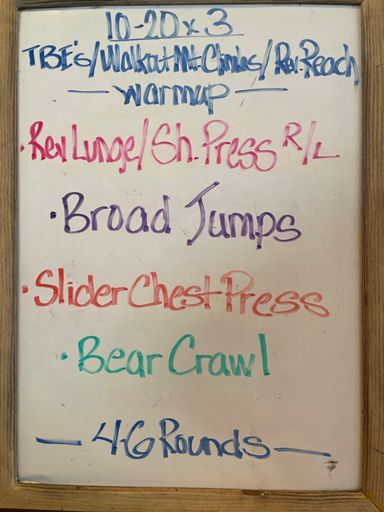 10-20 x 3
TBE's/Walkout Mt. Climbs/Rev. Reach
- warmup -
• Rev Lunge/Sh. Press R/L
• Broad Jumps
• Slider Chest Press
• Bear Crawl
- 4-6 Rounds -